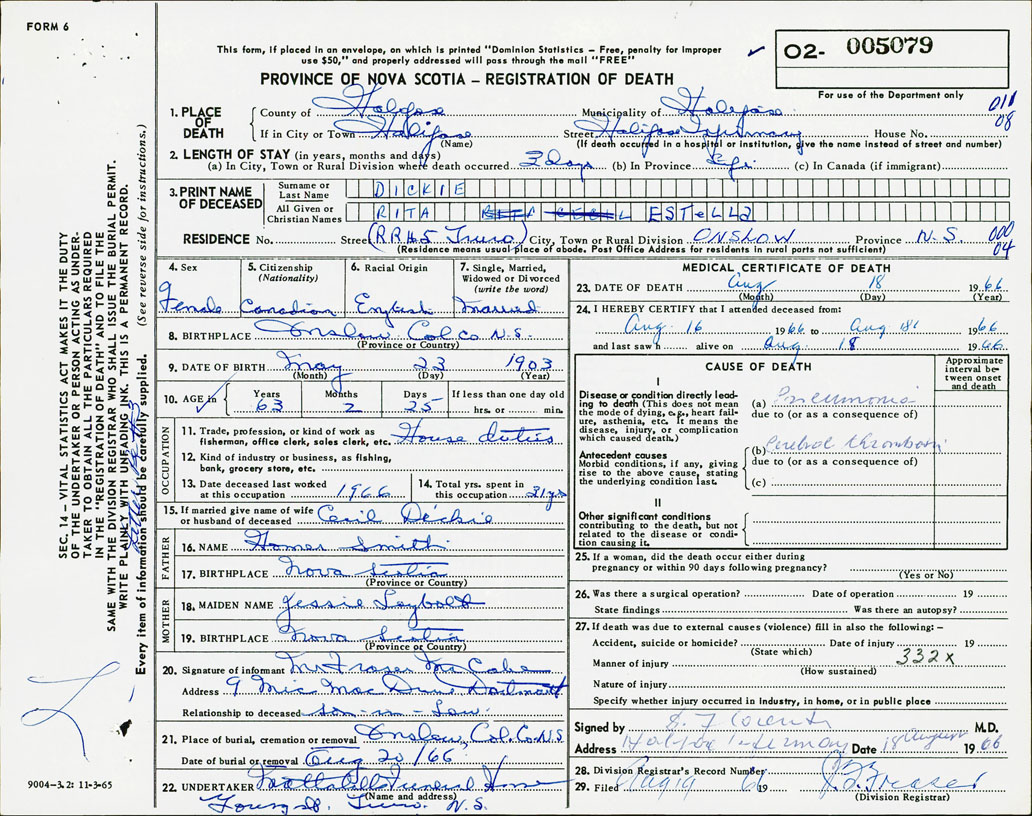 FORM 6
This form, if placed in an envelope, on which is printed "Dominion Statistics – Free, penalty for improper
use $50," and properly addressed will pass through the mail "FREE"
O2- 005079
For use of the Department only
PROVINCE OF NOVA SCOTIA – REGISTRATION OF DEATH
011
08
1. PLACE OF DEATH
County of Halifax Municipality of Halifax
If in City or Town Halifax Street Halifax Infirmary House No.
(Name) (If death occurred in a hospital or institution, give the name instead of street and number)
2. LENGTH OF STAY (in years, months and days)
(a) In City, Town or Rural Division where death occurred 3 days (b) In Province Life (c) In Canada (if immigrant)
3. PRINT NAME OF DECEASED
Surname or Last Name DICKIE
All Given or Christian Names RITA ESTELLA
RESIDENCE No. Street (RR#5 Truro) City, Town or Rural Division ONSLOW Province N.S. 000
04
(Residence means usual place of abode. Post Office Address for residents in rural parts not sufficient)
4. Sex Female
5. Citizenship (Nationality) Canadian
6. Racial Origin English
7. Single, Married, Widowed or Divorced (write the word) Married
8. BIRTHPLACE Onslow Col. co N.S.
(Province or Country)
9. DATE OF BIRTH May 23 1903
(Month) (Day) (Year)
10. AGE in Years 63 Months 2 Days 25 If less than one day old hrs. or min.
OCCUPATION
11. Trade, profession, or kind of work as fisherman, office clerk, sales clerk, etc. House duties
12. Kind of industry or business, as fishing, bank, grocery store, etc.
13. Date deceased last worked at this occupation 1966
14. Total yrs. spent in this occupation 31 yrs
15. If married give name of wife or husband of deceased Cecil Dickie
FATHER
16. NAME Homer Smith
17. BIRTHPLACE Nova Scotia
(Province or Country)
MOTHER
18. MAIDEN NAME Jessie Leybolt
19. BIRTHPLACE Nova Scotia
(Province or Country)
20. Signature of informant Mr Fraser McCabe
Address 9 Mic Mac Drive Dartmouth
Relationship to deceased son-in-Law
21. Place of burial, cremation or removal Onslow, Col. Co. N.S.
Date of burial or removal Aug 20/66
22. UNDERTAKER Mattatall Funeral Home
(Name and address)
Young St. Truro N.S.
MEDICAL CERTIFICATE OF DEATH
23. DATE OF DEATH Aug 18 1966
(Month) (Day) (Year)
24. I HEREBY CERTIFY that I attended deceased from:
Aug. 16 1966 to Aug 18 1966
and last saw h alive on Aug. 18 1966
CAUSE OF DEATH
Approximate interval between onset and death
I
Disease or condition directly leading to death (This does not mean the mode of dying, e.g., heart failure, asthenia, etc. It means the disease, injury, or complication which caused death.)
(a) Pneumonia
due to (or as a consequence of)
Antecedent causes
Morbid conditions, if any, giving rise to the above cause, stating the underlying condition last.
(b) Cerebral thrombosis
due to (or as a consequence of)
(c)
II
Other significant conditions contributing to the death, but not related to the disease or condition causing it.
25. If a woman, did the death occur either during
pregnancy or within 90 days following pregnancy?
(Yes or No)
26. Was there a surgical operation? Date of operation 19
State findings Was there an autopsy?
27. If death was due to external causes (violence) fill in also the following: –
Accident, suicide or homicide? Date of injury 19
(State which)
Manner of injury 332X
(How sustained)
Nature of injury
Specify whether injury occurred in Industry, in home, or in public place
Signed by M.D.
Address Halifax Infirmary Date 18 August 1966
28. Division Registrar's Record Number
29. Filed Aug 19 19
(Division Registrar)
SEC. 14 – VITAL STATISTICS ACT MAKES IT THE DUTY
OF THE UNDERTAKER OR PERSON ACTING AS UNDER-
TAKER TO OBTAIN ALL THE PARTICULARS REQUIRED
IN THE "REGISTRATION OF DEATH" AND TO FILE THE
SAME WITH THE DIVISION REGISTRAR WHO SHALL ISSUE THE BURIAL PERMIT.
WRITE PLAINLY WITH UNFADING INK. THIS IS A PERMANENT RECORD.
Every item of information should be carefully supplied. (See reverse side for instructions.)
9004-3.2: 11-3-65